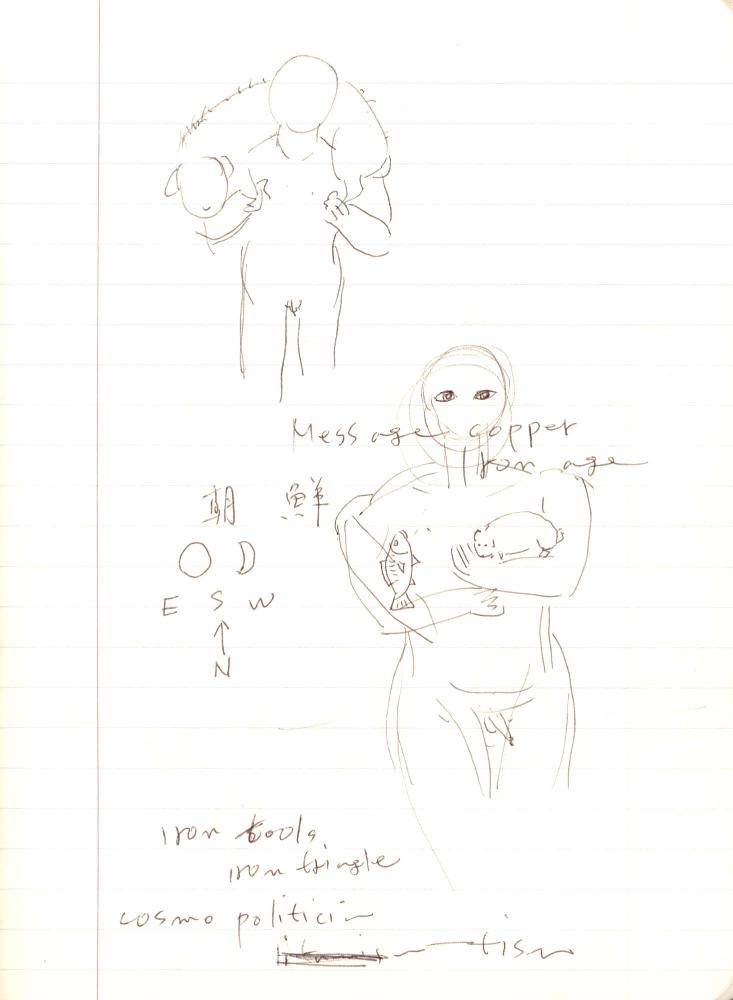 Message copper
Iron age
朝 鮮
E S W
N
iron tools
iron triangle
cosmo politici
tism